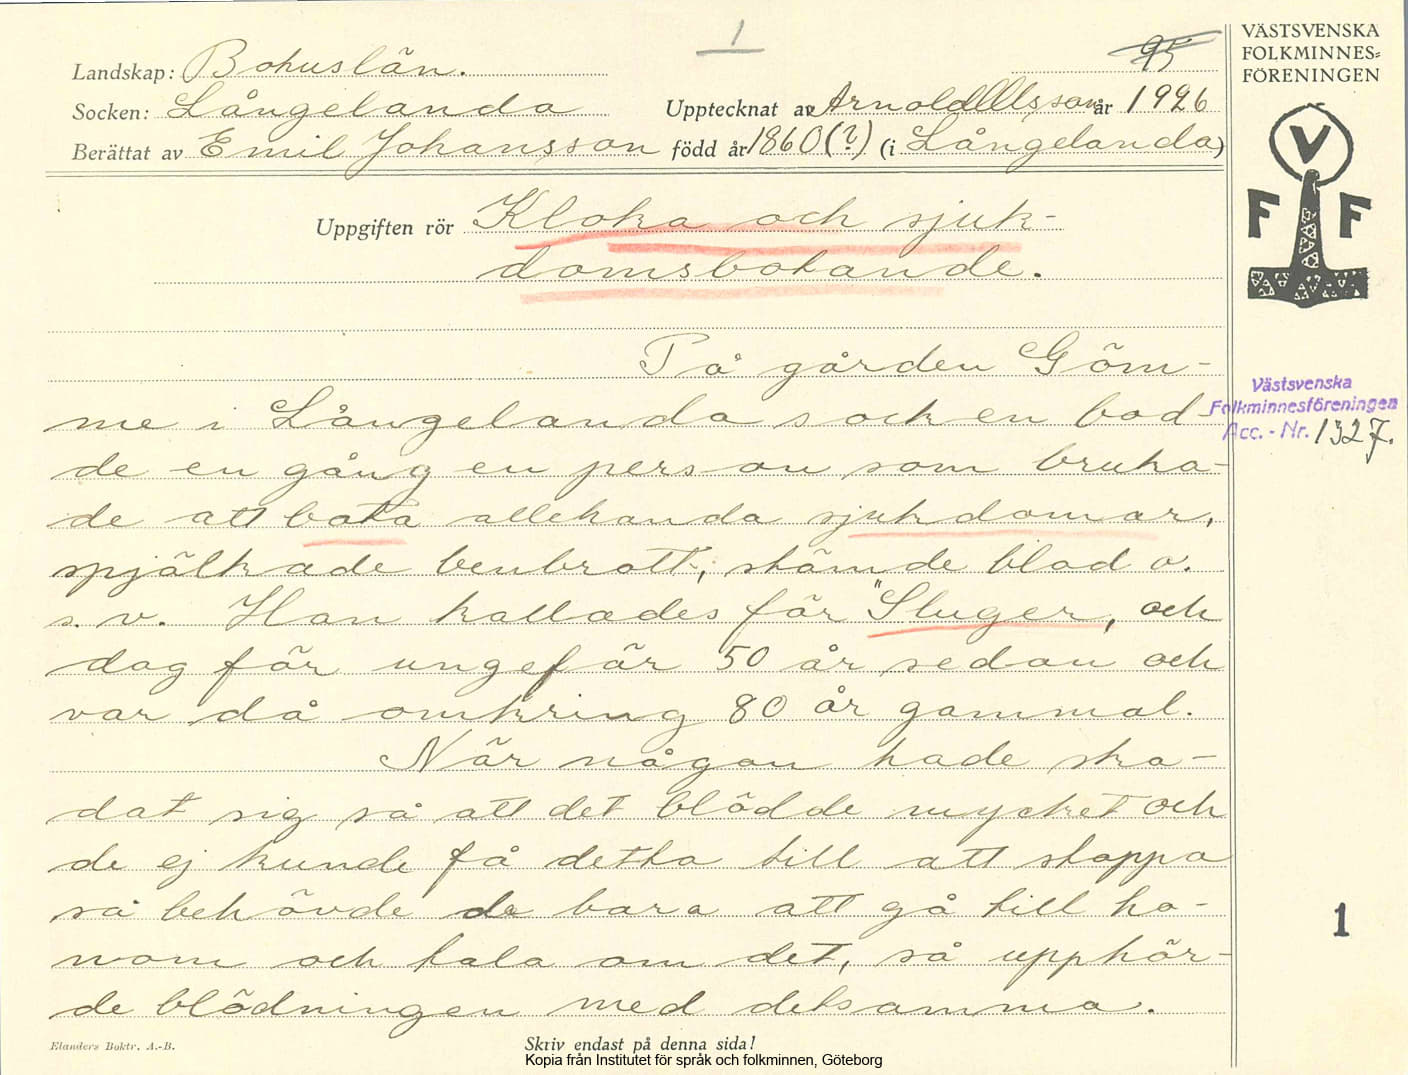 1
95
VÄSTSVENSKA
FOLKMINNES=
FÖRENINGEN
Landskap: Bohuslän.
Socken: Långelanda Upptecknat av Arnold Olsson år 1926
Berättat av Emil Johansson född år 1860(?) (i Långelanda)
V
F F
Uppgiften rör Kloka och sjuk-
domsbotande.
På gården Göm-
me i Långelanda socken bod-
de en gång en person som bruka-
de att bota allehanda sjukdomar,
spjälkade benbrott, stämde blod o.
s. v. Han kallades för "Sluger, och
dog för ungefär 50 år sedan och
var då omkring 80 år gammal.
När någon hade ska-
dat sig så att det blödde mycket och
de ej kunde få detta till att stoppa
så behövde de bara att gå till ho-
nom och tala om det, så upphör-
de blödningen med detsamma.
Västsvenska
Folkminnesföreningen
Acc. - Nr. 1327.
1
Elanders Boktr. A.-B.
Skriv endast på denna sida!
Kopia från Institutet för språk och folkminnen, Göteborg